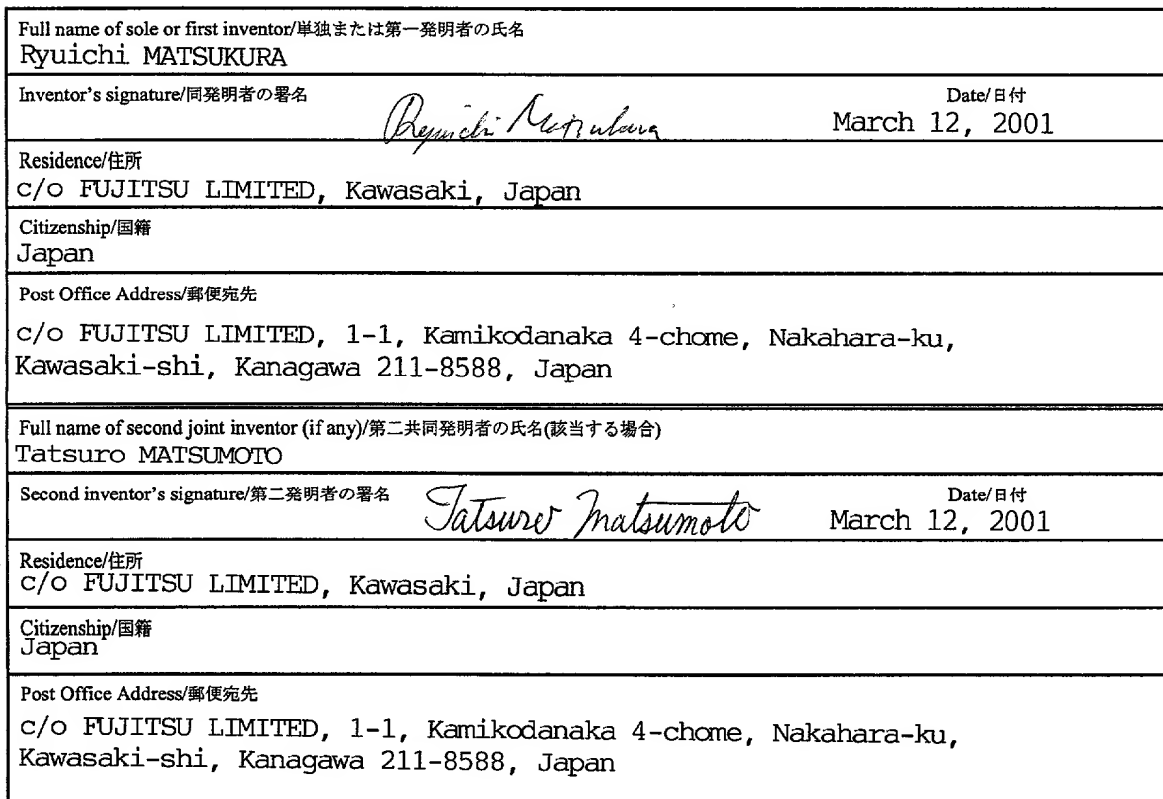 Full name of sole or first inventor/単独または第一発明者の氏名
Ryuichi MATSUKURA
Inventor's signature/同発明者の署名
Ryuichi Matsukura
Date/日付
March 12, 2001
Residence/住所
c/o FUJITSU LIMITED, Kawasaki, Japan
Citizenship/国籍
Japan
Post Office Address/郵便宛先
c/o FUJITSU LIMITED, 1-1, Kamikodanaka 4-chome, Nakahara-ku,
Kawasaki-shi, Kanagawa 211-8588, Japan
Full name of second joint inventor (if any)/第二共同発明者の氏名(該当する場合)
Tatsuro MATSUMOTO
Second inventor's signature/第二発明者の署名
Tatsuro Matsumoto
Date/日付
March 12, 2001
Residence/住所
c/o FUJITSU LIMITED, Kawasaki, Japan
Citizenship/国籍
Japan
Post Office Address/郵便宛先
c/o FUJITSU LIMITED, 1-1, Kamikodanaka 4-chome, Nakahara-ku,
Kawasaki-shi, Kanagawa 211-8588, Japan